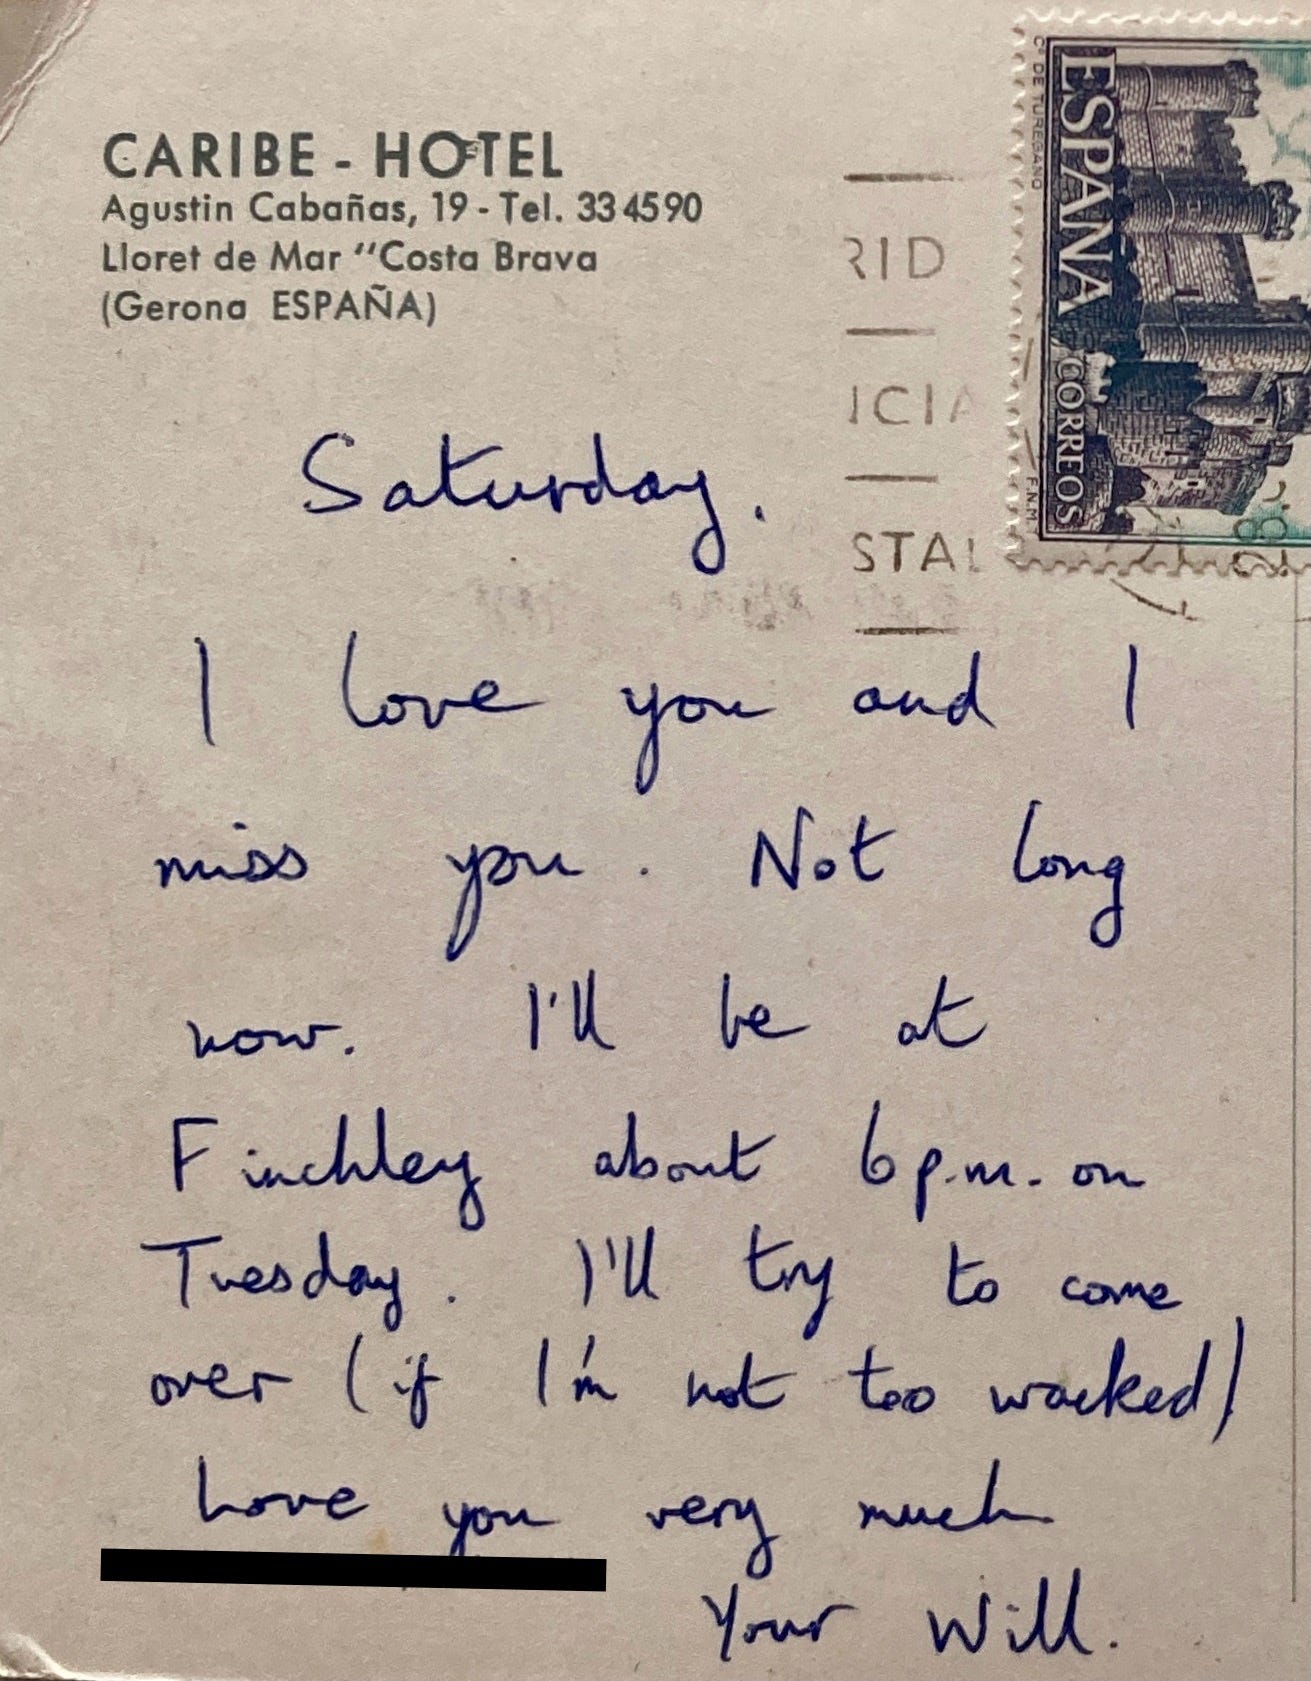 CARIBE - HOTEL
Agustin Cabañas, 19 - Tel. 334590
Lloret de Mar "Costa Brava
(Gerona ESPAÑA)
Cº DE TUREGANO
ESPAÑA
CORREOS
F.N.M.T
RID
ICIA
STAL
Saturday.
I love you and I
miss you. Not long
now. I'll be at
Finchley about 6 p.m. on
Tuesday. I'll try to come
over (if I'm not too wacked)
Love you very much
Your Will.